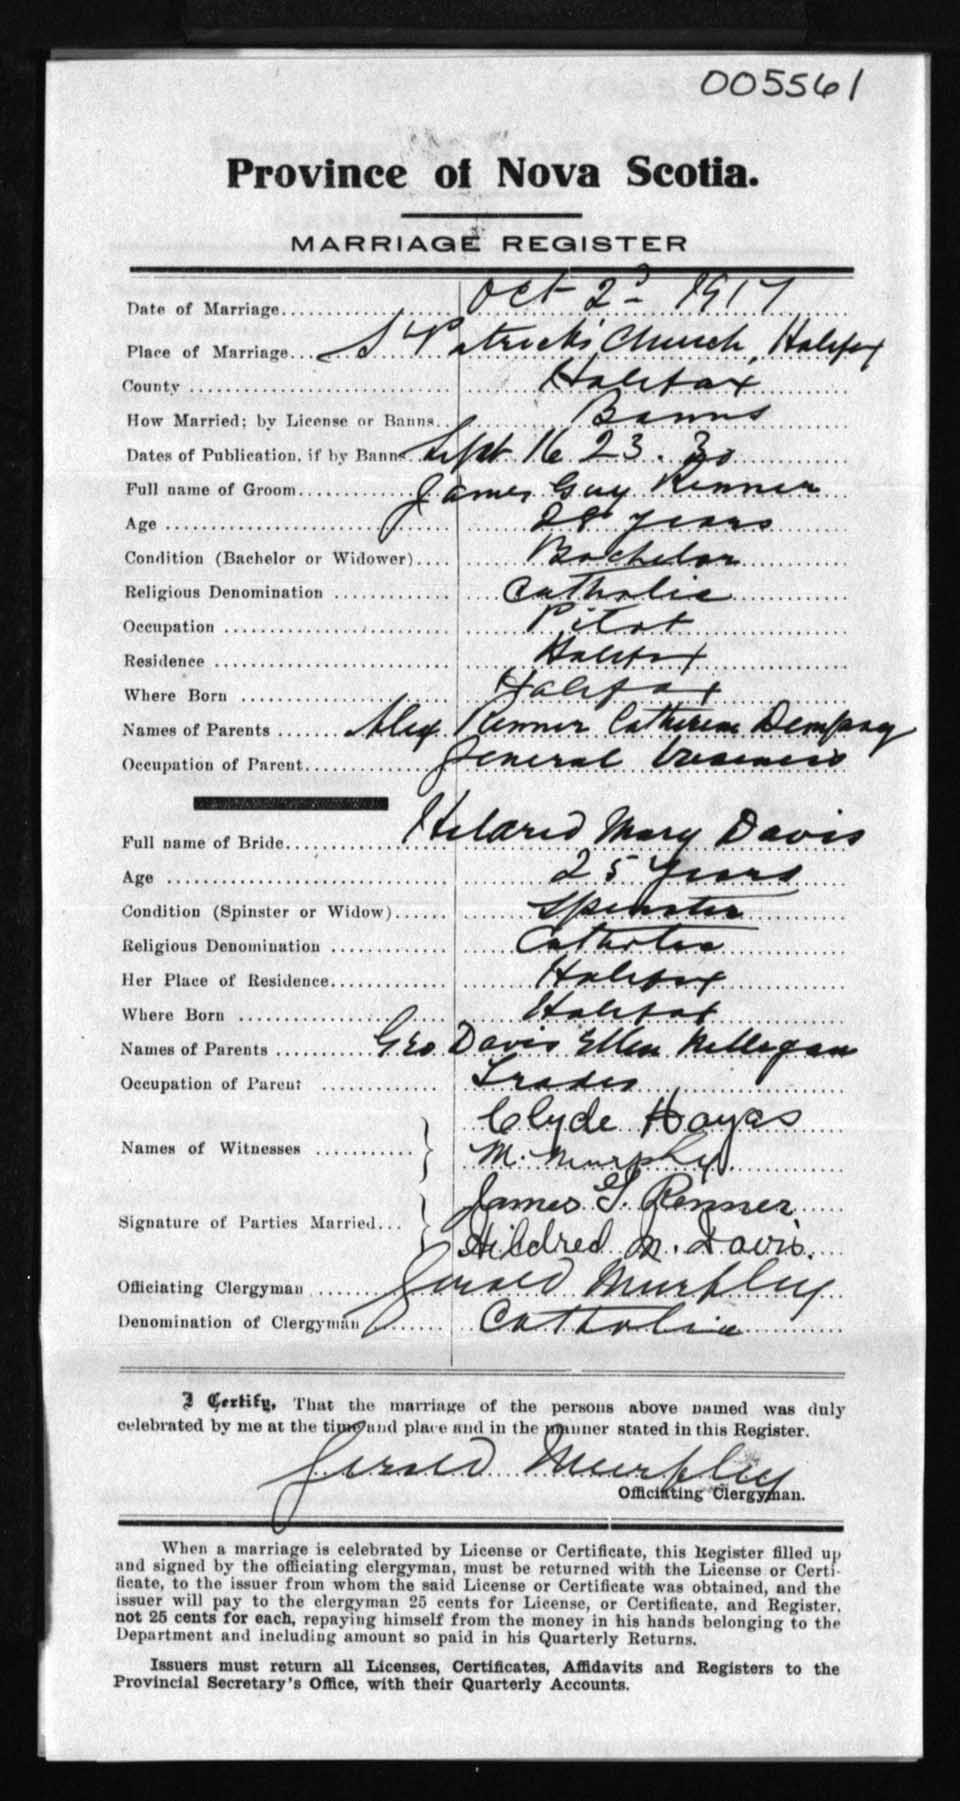 005561
Province of Nova Scotia.
MARRIAGE REGISTER
Date of Marriage Oct 2d 1917
Place of Marriage St Patrick's Church, Halifax
County Halifax
How Married; by License or Banns Banns
Dates of Publication, if by Banns Sept 16 23. 30
Full name of Groom James Guy Renner
Age 28 years
Condition (Bachelor or Widower) Bachelor
Religious Denomination Catholic
Occupation Pilot
Residence Halifax
Where Born Halifax
Names of Parents Alex Renner Catherine Dempsey
Occupation of Parent General business
Full name of Bride Hildred Mary Davis
Age 25 years
Condition (Spinster or Widow) Spinster
Religious Denomination Catholic
Her Place of Residence Halifax
Where Born Halifax
Names of Parents Geo Davis Ellen Milligan
Occupation of Parent Trades
Clyde Hayes
Names of Witnesses
M. Murphy.
James G. Renner
Signature of Parties Married
Hildred M. Davis.
Officiating Clergyman Gerald Murphy
Denomination of Clergyman Catholic
I Certify, That the marriage of the persons above named was duly
celebrated by me at the time and place and in the manner stated in this Register.
Gerald Murphy
Officiating Clergyman.
When a marriage is celebrated by License or Certificate, this Register filled up
and signed by the officiating clergyman, must be returned with the License or Certi-
ficate, to the issuer from whom the said License or Certificate was obtained, and the
issuer will pay to the clergyman 25 cents for License, or Certificate, and Register,
not 25 cents for each, repaying himself from the money in his hands belonging to the
Department and including amount so paid in his Quarterly Returns.
Issuers must return all Licenses, Certificates, Affidavits and Registers to the
Provincial Secretary's Office, with their Quarterly Accounts.